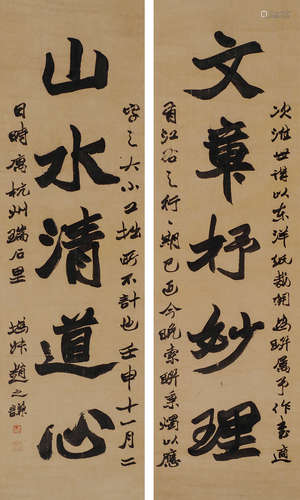 文章抒妙理
次淮世讲以东洋纸裁
属予作书适
有江
之行
期已
今晚索
秉烛以应
山水清道心
字之大小工拙所不计也壬申十一月二
日时寓杭州瑞石里
赵之谦